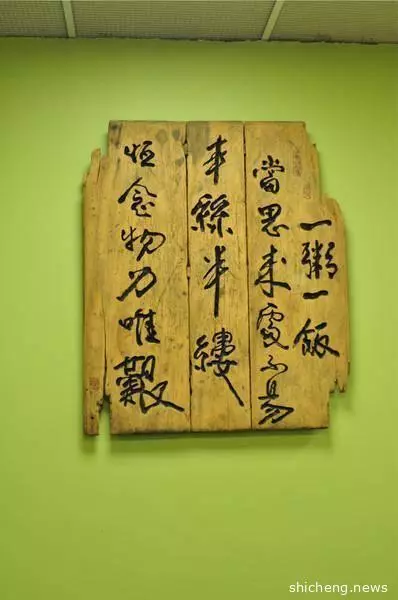 一粥一飯
當思來處不易
半絲半縷
恒念物力唯艱
shicheng.news